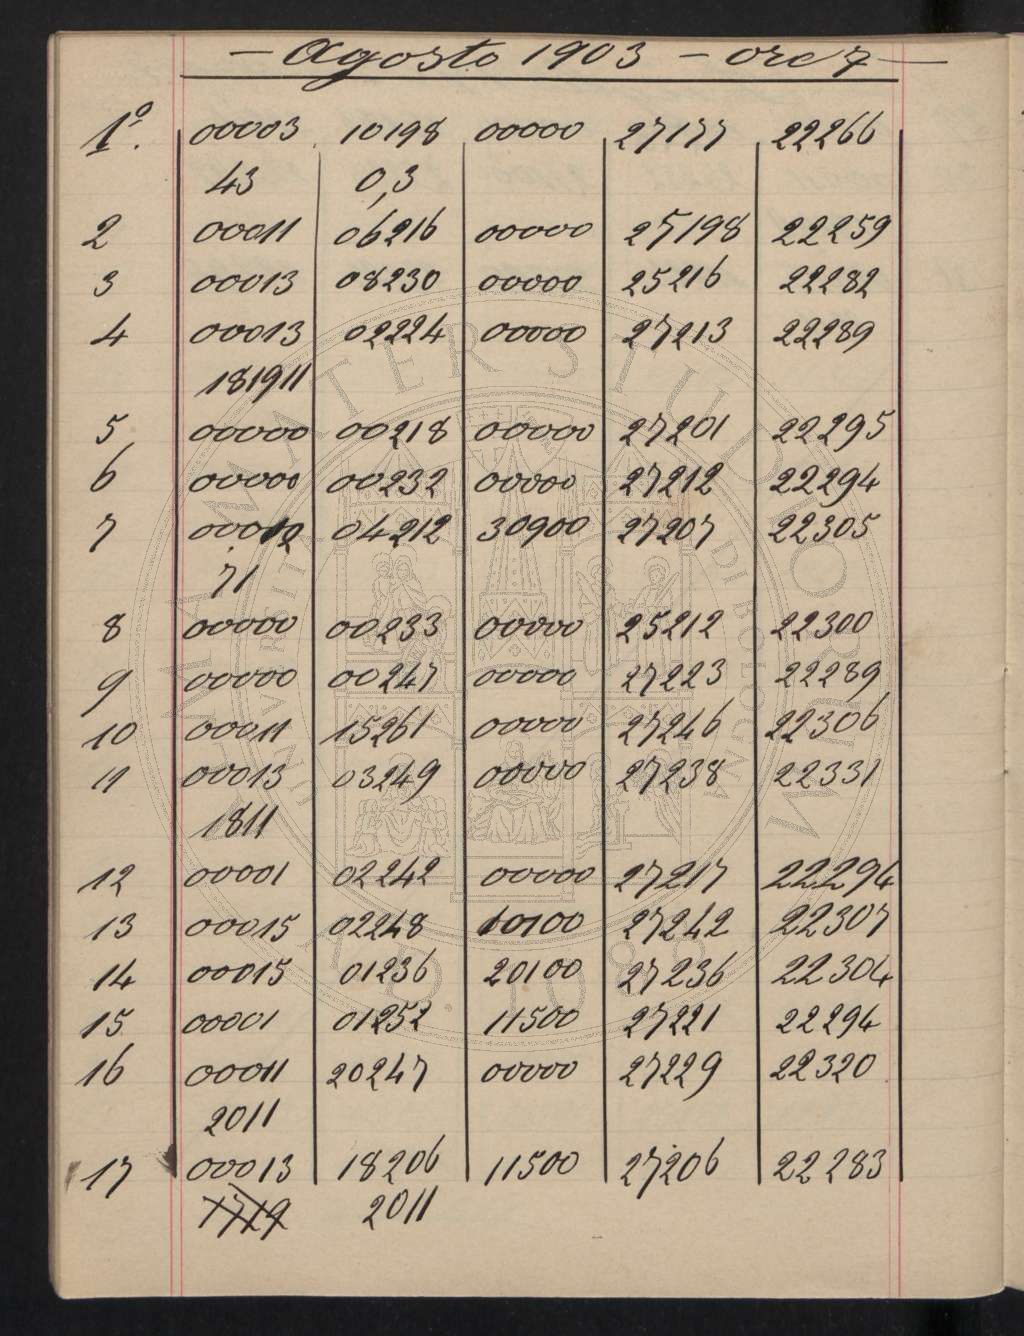 — Agosto 1903 — ore 7 —
1º. 00003 10198 00000 27177 22266
43 0,3
2 00011 06216 00000 27198 22259
3 00013 08230 00000 25216 22282
4 00013 02224 00000 27213 22289
181911
5 00000 00218 00000 27201 22295
6 00000 00232 00000 27212 22294
7 04212 30900 27207 22305
71
8 00000 00233 00000 25212 22300
9 00000 00247 00000 27223 22289
10 00011 15261 00000 27246 22306
11 00013 03249 00000 27238 22331
1811
12 00001 02242 00000 27217 22294
13 00015 02248 10100 27242 22307
14 00015 01236 20100 27236 22304
15 00001 01252 11500 27221 22294
16 00011 20247 00000 27229 22320
2011
17 00013 18206 11500 27206 22283
2011
ALMA MATER STUDIORUM
UNIVERSITÀ DI BOLOGNA
A.D. 1088